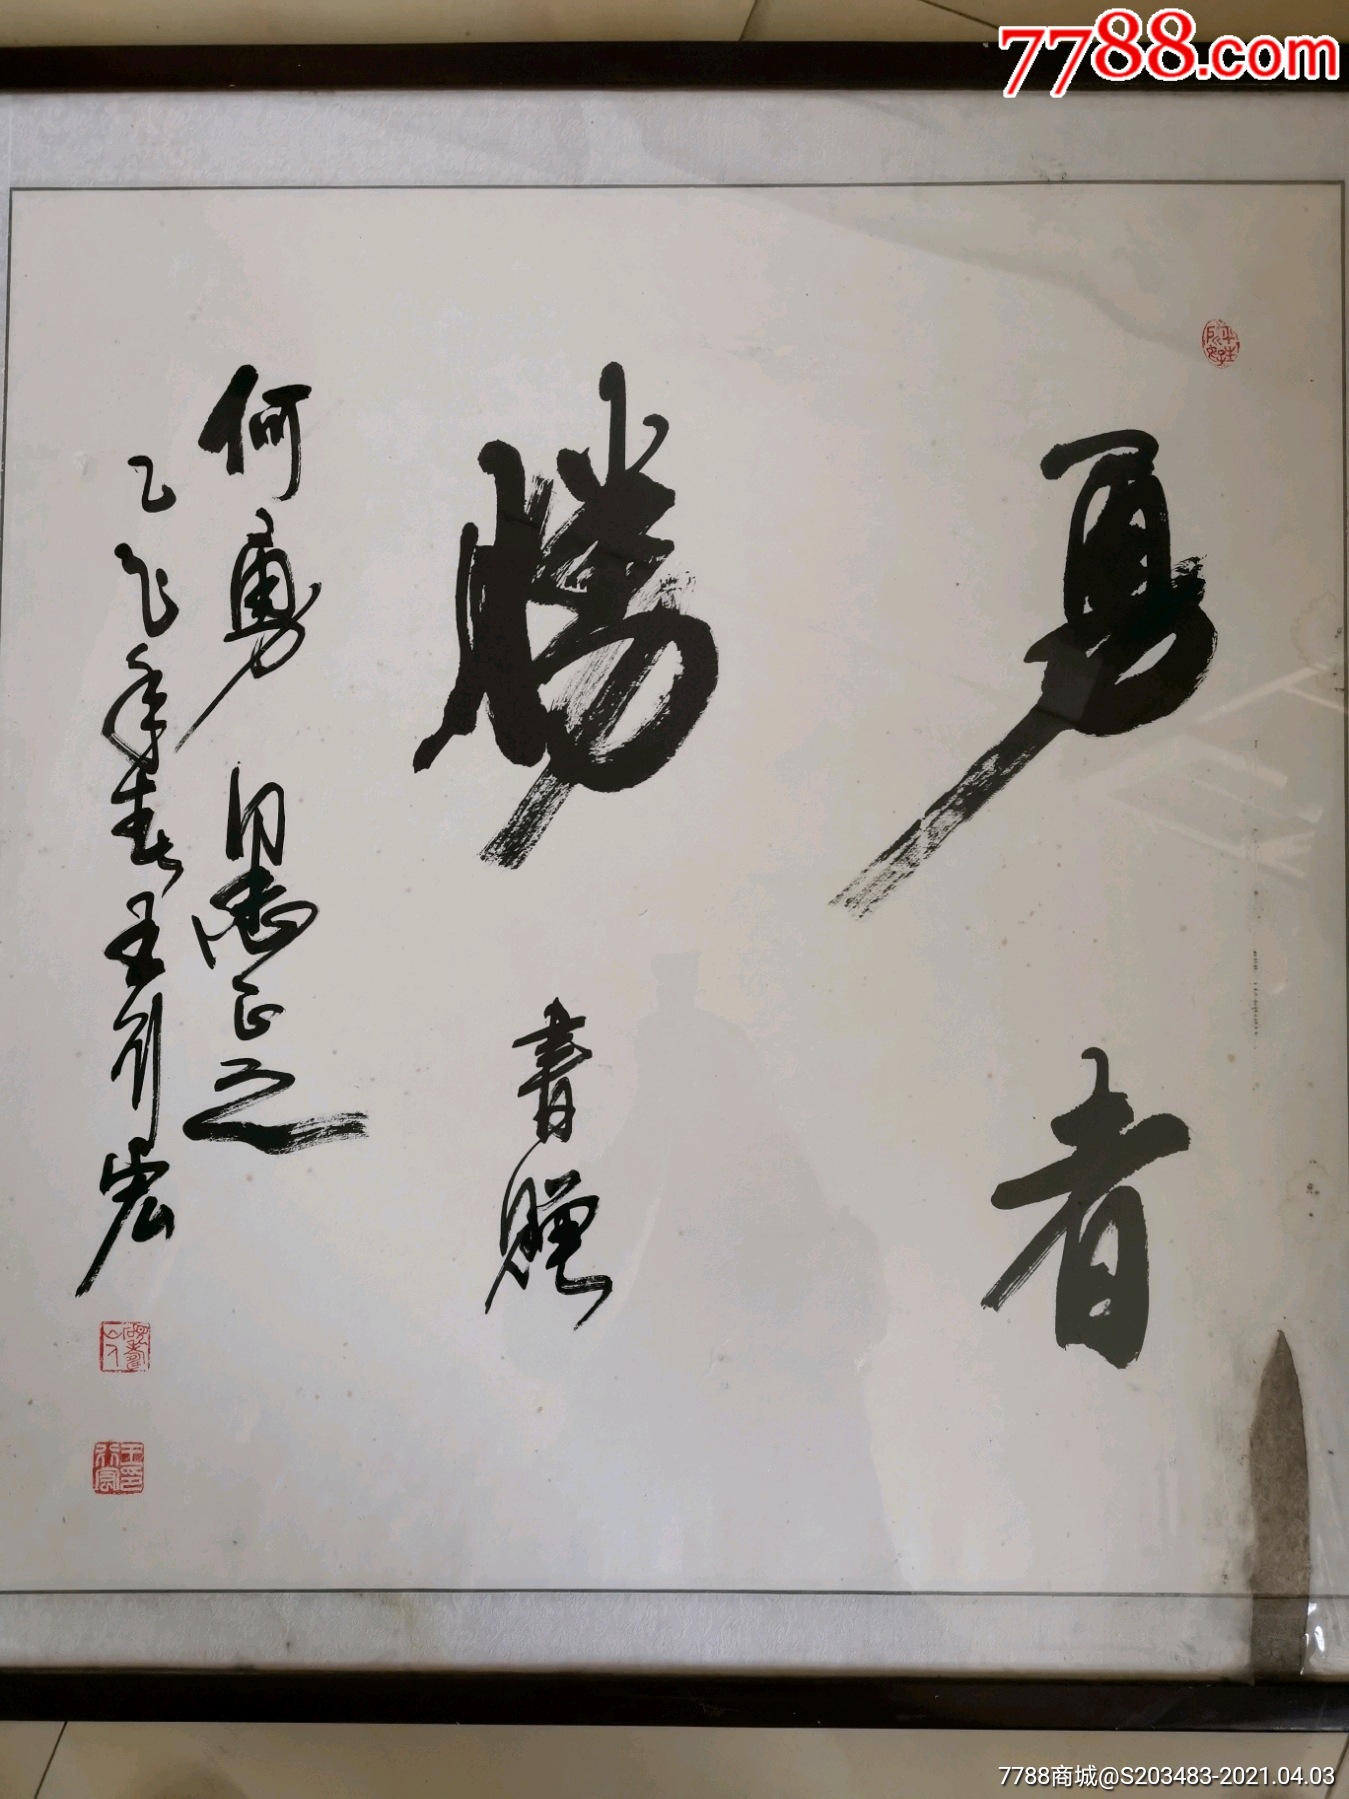 7788.com
勇者
勝
書贈
何勇同志正之
年春王
宏
7788商城@S203483-2021.04.03